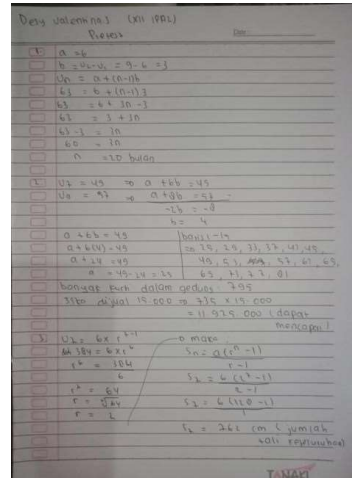 Desy Valentina S (XII IPA2)
Proses
Date
1. a = 6
b = U2-U1 = 9-6 = 3
Un = a + (n-1)b
63 = 6 + (n-1)3
63 = 6 + 3n - 3
63 = 3 + 3n
63-3 = 3n
60 = 3n
n = 20 bulan
2. U7 = 49 => a + 6b = 49
U9 = 57 => a + 8b = 57 -
-2b = -8
b = 4
a + 6b = 49
a + 6(4) = 49
a + 24 = 49
a = 49-24 = 25
baris 1-15
=> 25, 29, 33, 37, 41, 45,
49, 53, 57, 61, 65,
69, 73, 77, 81
banyak kursi dalam gedung: 795
Jika dijual 15.000 => 795 x 15.000
= 11.925.000 (dapat
mencapai)
3. U7 = 6 x r
384 = 6 x r^6
r^6 = 384
6
r^6 = 64
r = 2
maka
Sn = a(r^n - 1)
r - 1
= 6 (128 - 1)
1
= 762 cm (jumlah
tali keseluruhan)